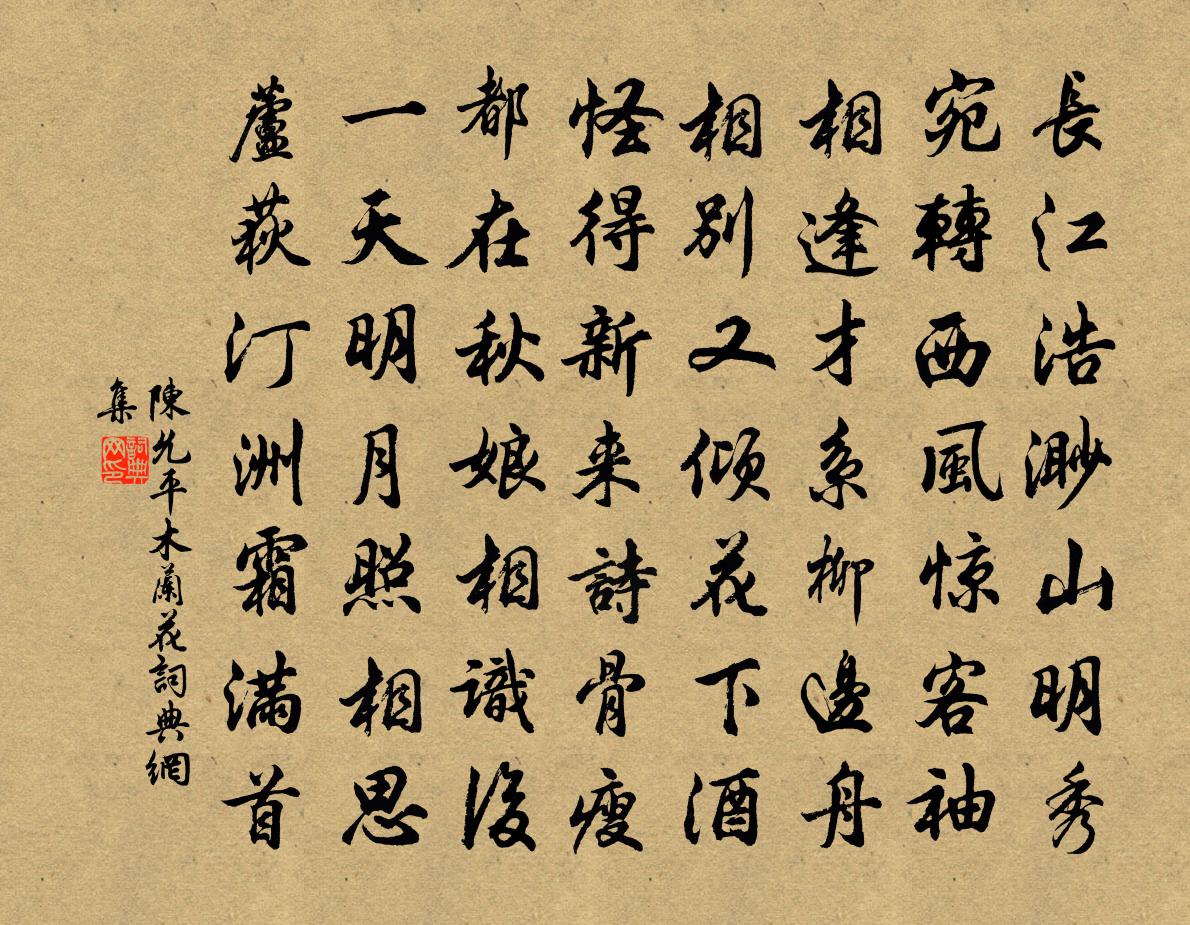 長江浩渺山明秀
宛轉西風惊客袖
相逢才系柳邊舟
相別又倾花下酒
怪得新来詩骨瘦
都在秋娘相識後
一天明月照相思
蘆荻汀洲霜满首
陳允平木蘭花詞典網
集
詞典
网印